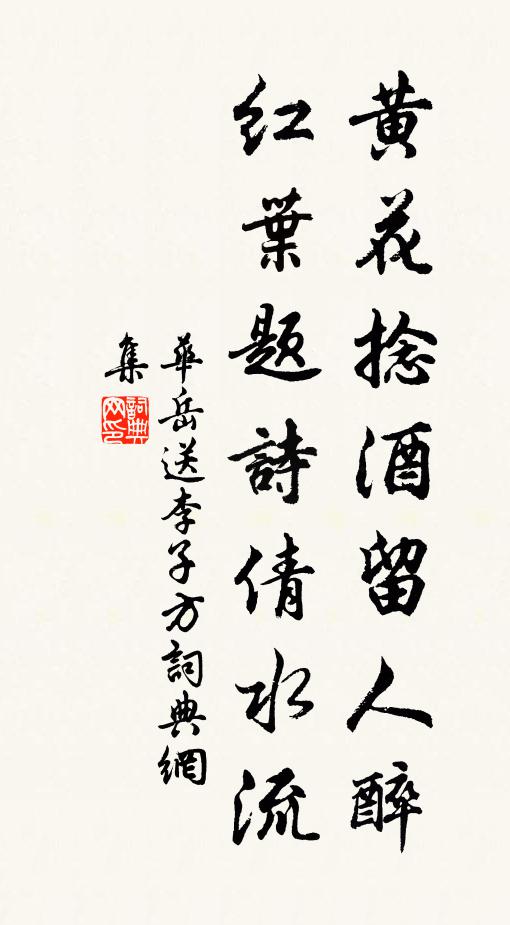 黄花捻酒留人醉
红葉题詩倩水流
華岳送李子方詞典網
集
詞典
网印